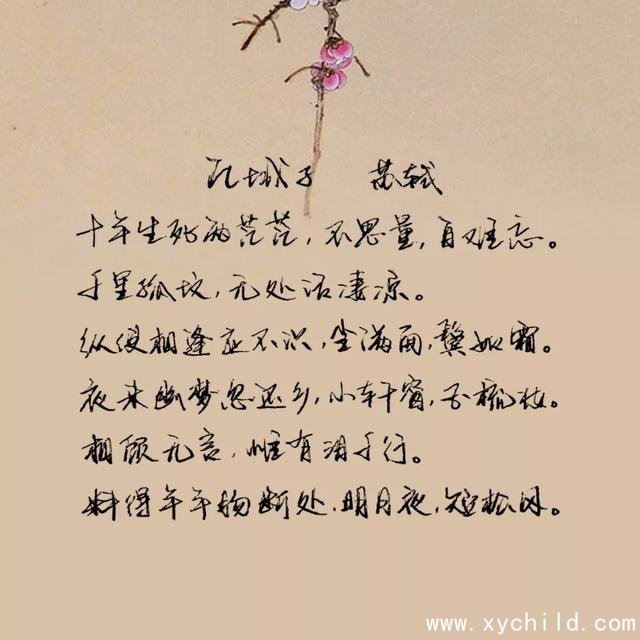 江城子 苏轼
十年生死两茫茫，不思量，自难忘。
千里孤坟，无处话凄凉。
纵使相逢应不识，尘满面，鬓如霜。
夜来幽梦忽还乡，小轩窗，正梳妆。
相顾无言，惟有泪千行。
料得年年肠断处，明月夜，短松冈。
www.xychild.com